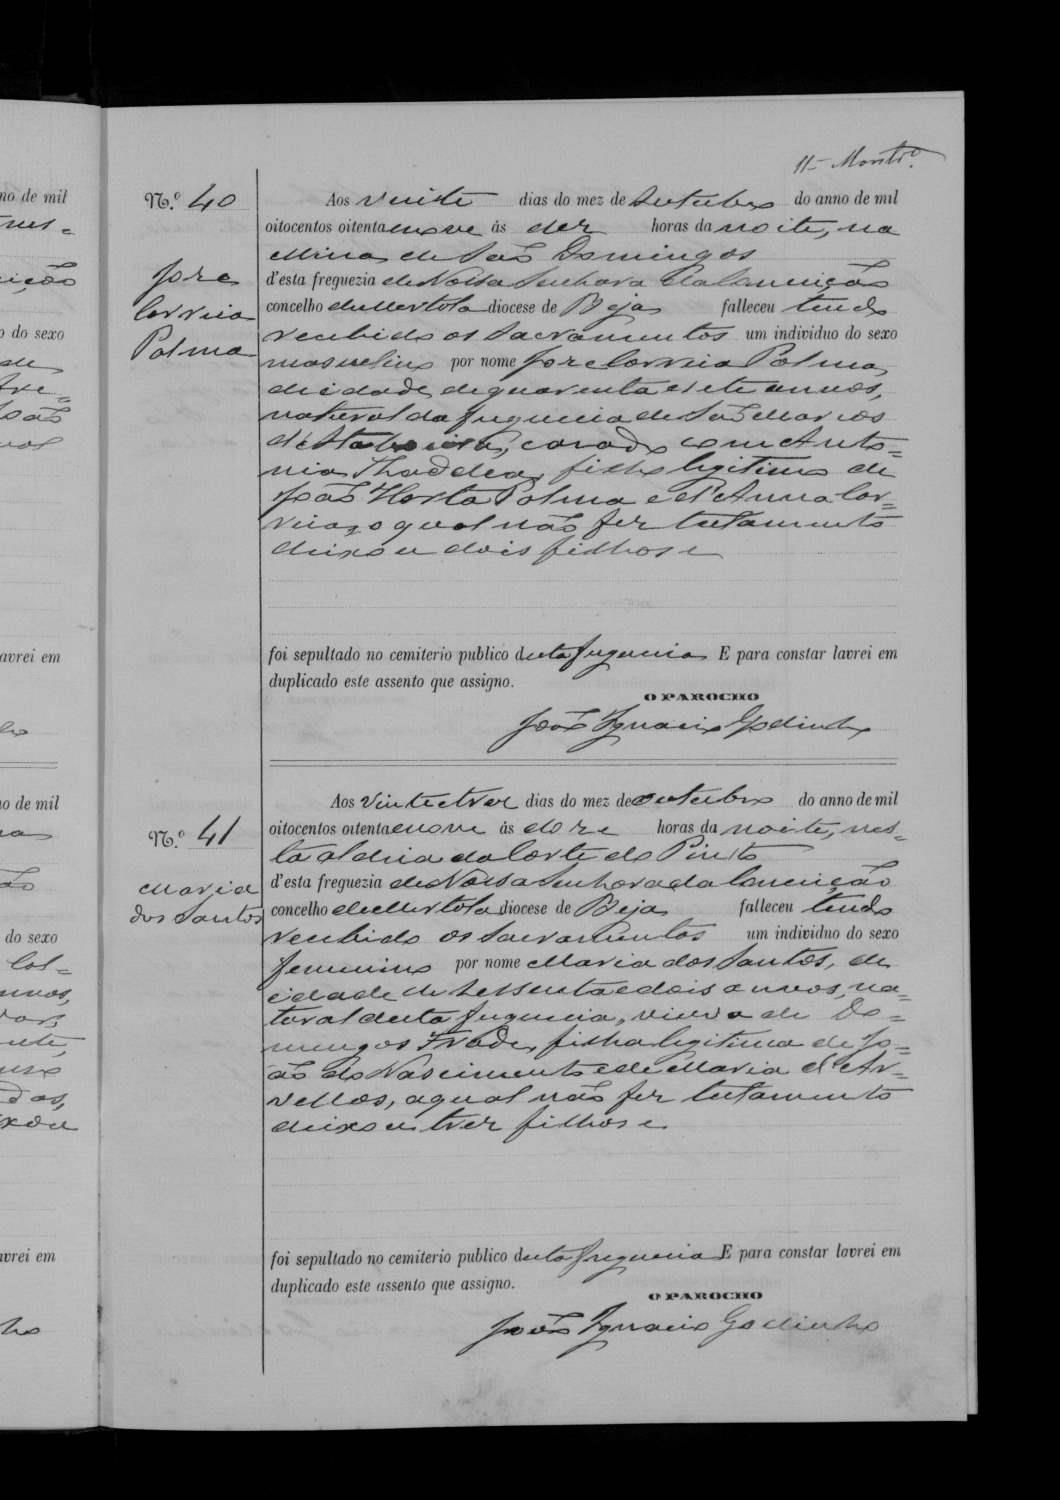 11- Montr.º
N.º 40
Jose
Correia
Palma
Aos vinte dias do mez de Outubro do anno de mil
oitocentos oitenta e nove ás dez horas da noite, na
Mina de São Domingos
d'esta freguezia de Nossa Senhora da Conceição
concelho de Mertola diocese de Beja falleceu tendo
recebido os sacramentos um individuo do sexo
masculino por nome Jose Correia Palma,
de idade de quarenta e sete annos,
natural da freguezia de São Marcos
d'Atabueira, casado com Anto=
nia Thaddea, filho legitimo de
João Horta Palma e d'Anna Cor=
reia, o qual não fez testamento
deixou dois filhos e
foi sepultado no cemiterio publico desta freguezia E para constar lavrei em
duplicado este assento que assigno.
O PAROCHO
João Ignacio Godinho
N.º 41
Maria
dos Santos
Aos vinte e tres dias do mez de outubro do anno de mil
oitocentos oitenta e nove ás doze horas da noite, nes=
ta aldeia da Corte do Pinto
d'esta freguezia de Nossa Senhora da Conceição
concelho de Mertola diocese de Beja falleceu tendo
recebido os sacramentos um individuo do sexo
femenino por nome Maria dos Santos, de
idade de sessenta e dois annos, na=
tural desta freguezia, viuva de Do=
mingos Frade, filha legitima de Jo=
ão do Nascimento e de Maria d'Ar=
vellos, a qual não fez testamento
deixou tres filhos e
foi sepultado no cemiterio publico desta freguezia E para constar lavrei em
duplicado este assento que assigno.
O PAROCHO
João Ignacio Godinho